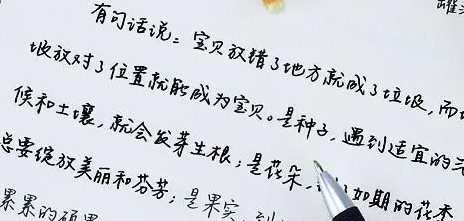 罐头
有句话说：宝贝放错了地方就成了垃圾，而
圾放对了位置就能成为宝贝。是种子，遇到适宜的
候和土壤，就会发芽生根；是花朵，如期的花木
总要绽放美丽和芬芳；是果实，到
累累的硕果